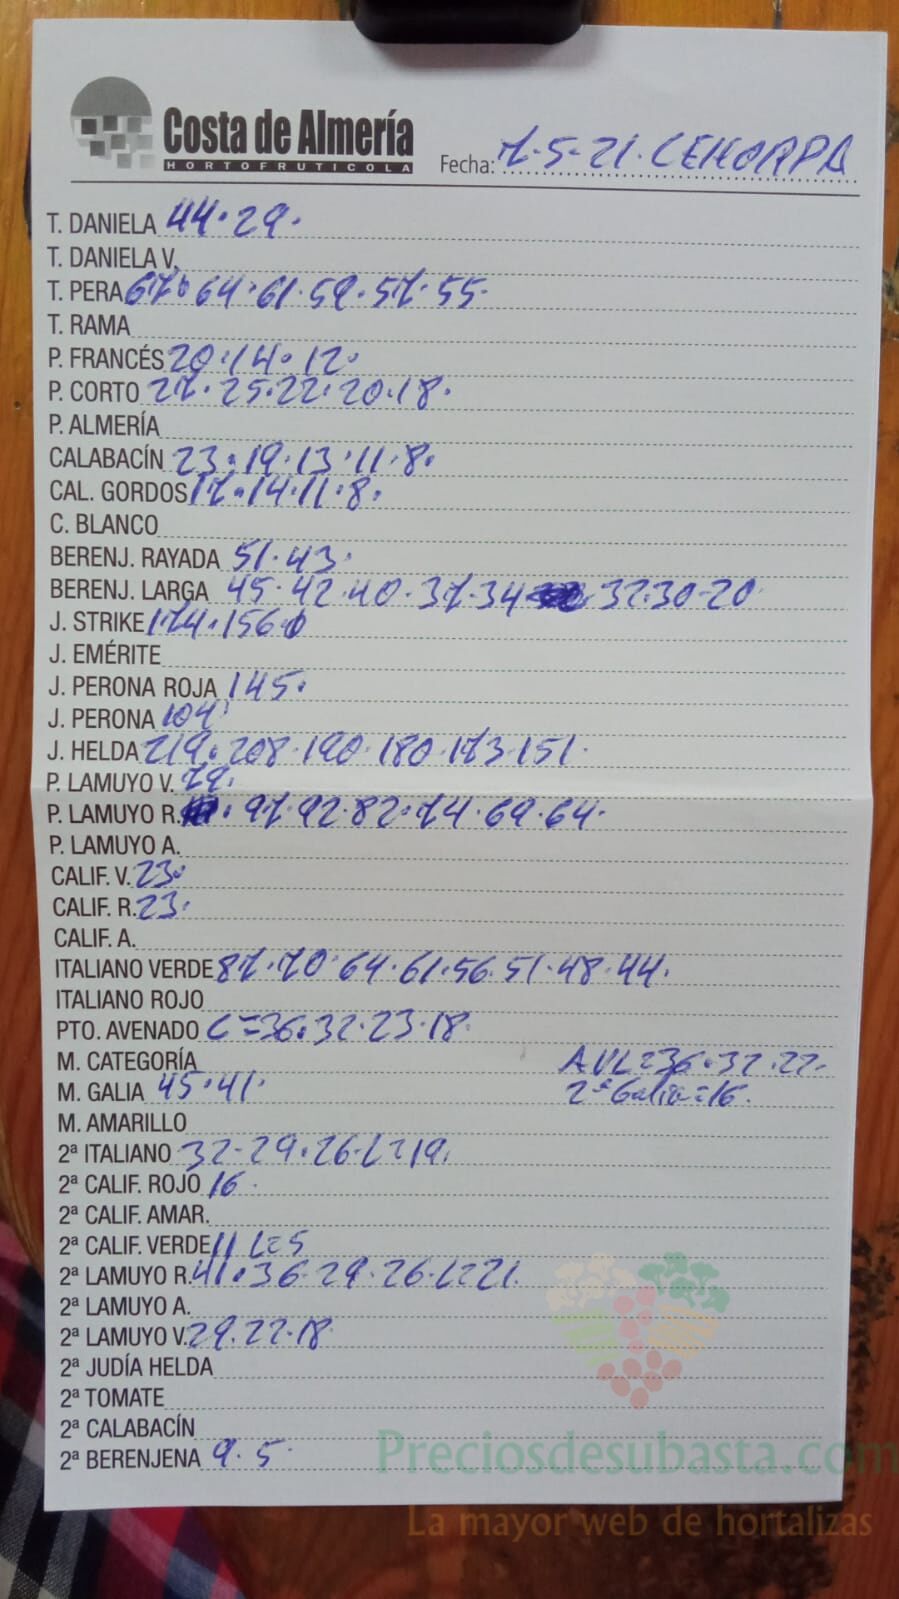 Costa de Almería
HORTOFRUTICOLA
Fecha: 7-5-21. CEHORPA
T. DANIELA 44.29.
T. DANIELA V.
T. PERA 67.64.61.59.57.55.
T. RAMA
P. FRANCÉS 20.14.12.
P. CORTO 27.25.22.20.18.
P. ALMERÍA
CALABACÍN 23.19.13.11.8.
CAL. GORDOS 17.14.11.8.
C. BLANCO
BERENJ. RAYADA 51.43.
BERENJ. LARGA 45.42.40.37.34 32.30-20
J. STRIKE 174.156.
J. EMÉRITE
J. PERONA ROJA 145.
J. PERONA 104
J. HELDA 219.208.190.180.173.151.
P. LAMUYO V. 79.
P. LAMUYO R. 97.92.82.74.69.64.
P. LAMUYO A.
CALIF. V. 23.
CALIF. R. 23.
CALIF. A.
ITALIANO VERDE 87.70.64.61.56.51.48.44.
ITALIANO ROJO
PTO. AVENADO C=36.32.23.18.
M. CATEGORÍA AVL=36.32.22.
M. GALIA 45.41. 2ª Galia=16.
M. AMARILLO
2ª ITALIANO 32-29.26-L=19.
2ª CALIF. ROJO 16.
2ª CALIF. AMAR.
2ª CALIF. VERDE 11 L=5
2ª LAMUYO R. 41.36.29.26.L=21.
2ª LAMUYO A.
2ª LAMUYO V. 29.22.18
2ª JUDÍA HELDA
2ª TOMATE
2ª CALABACÍN
2ª BERENJENA 9.5
Preciosdesubasta.com
La mayor web de hortalizas